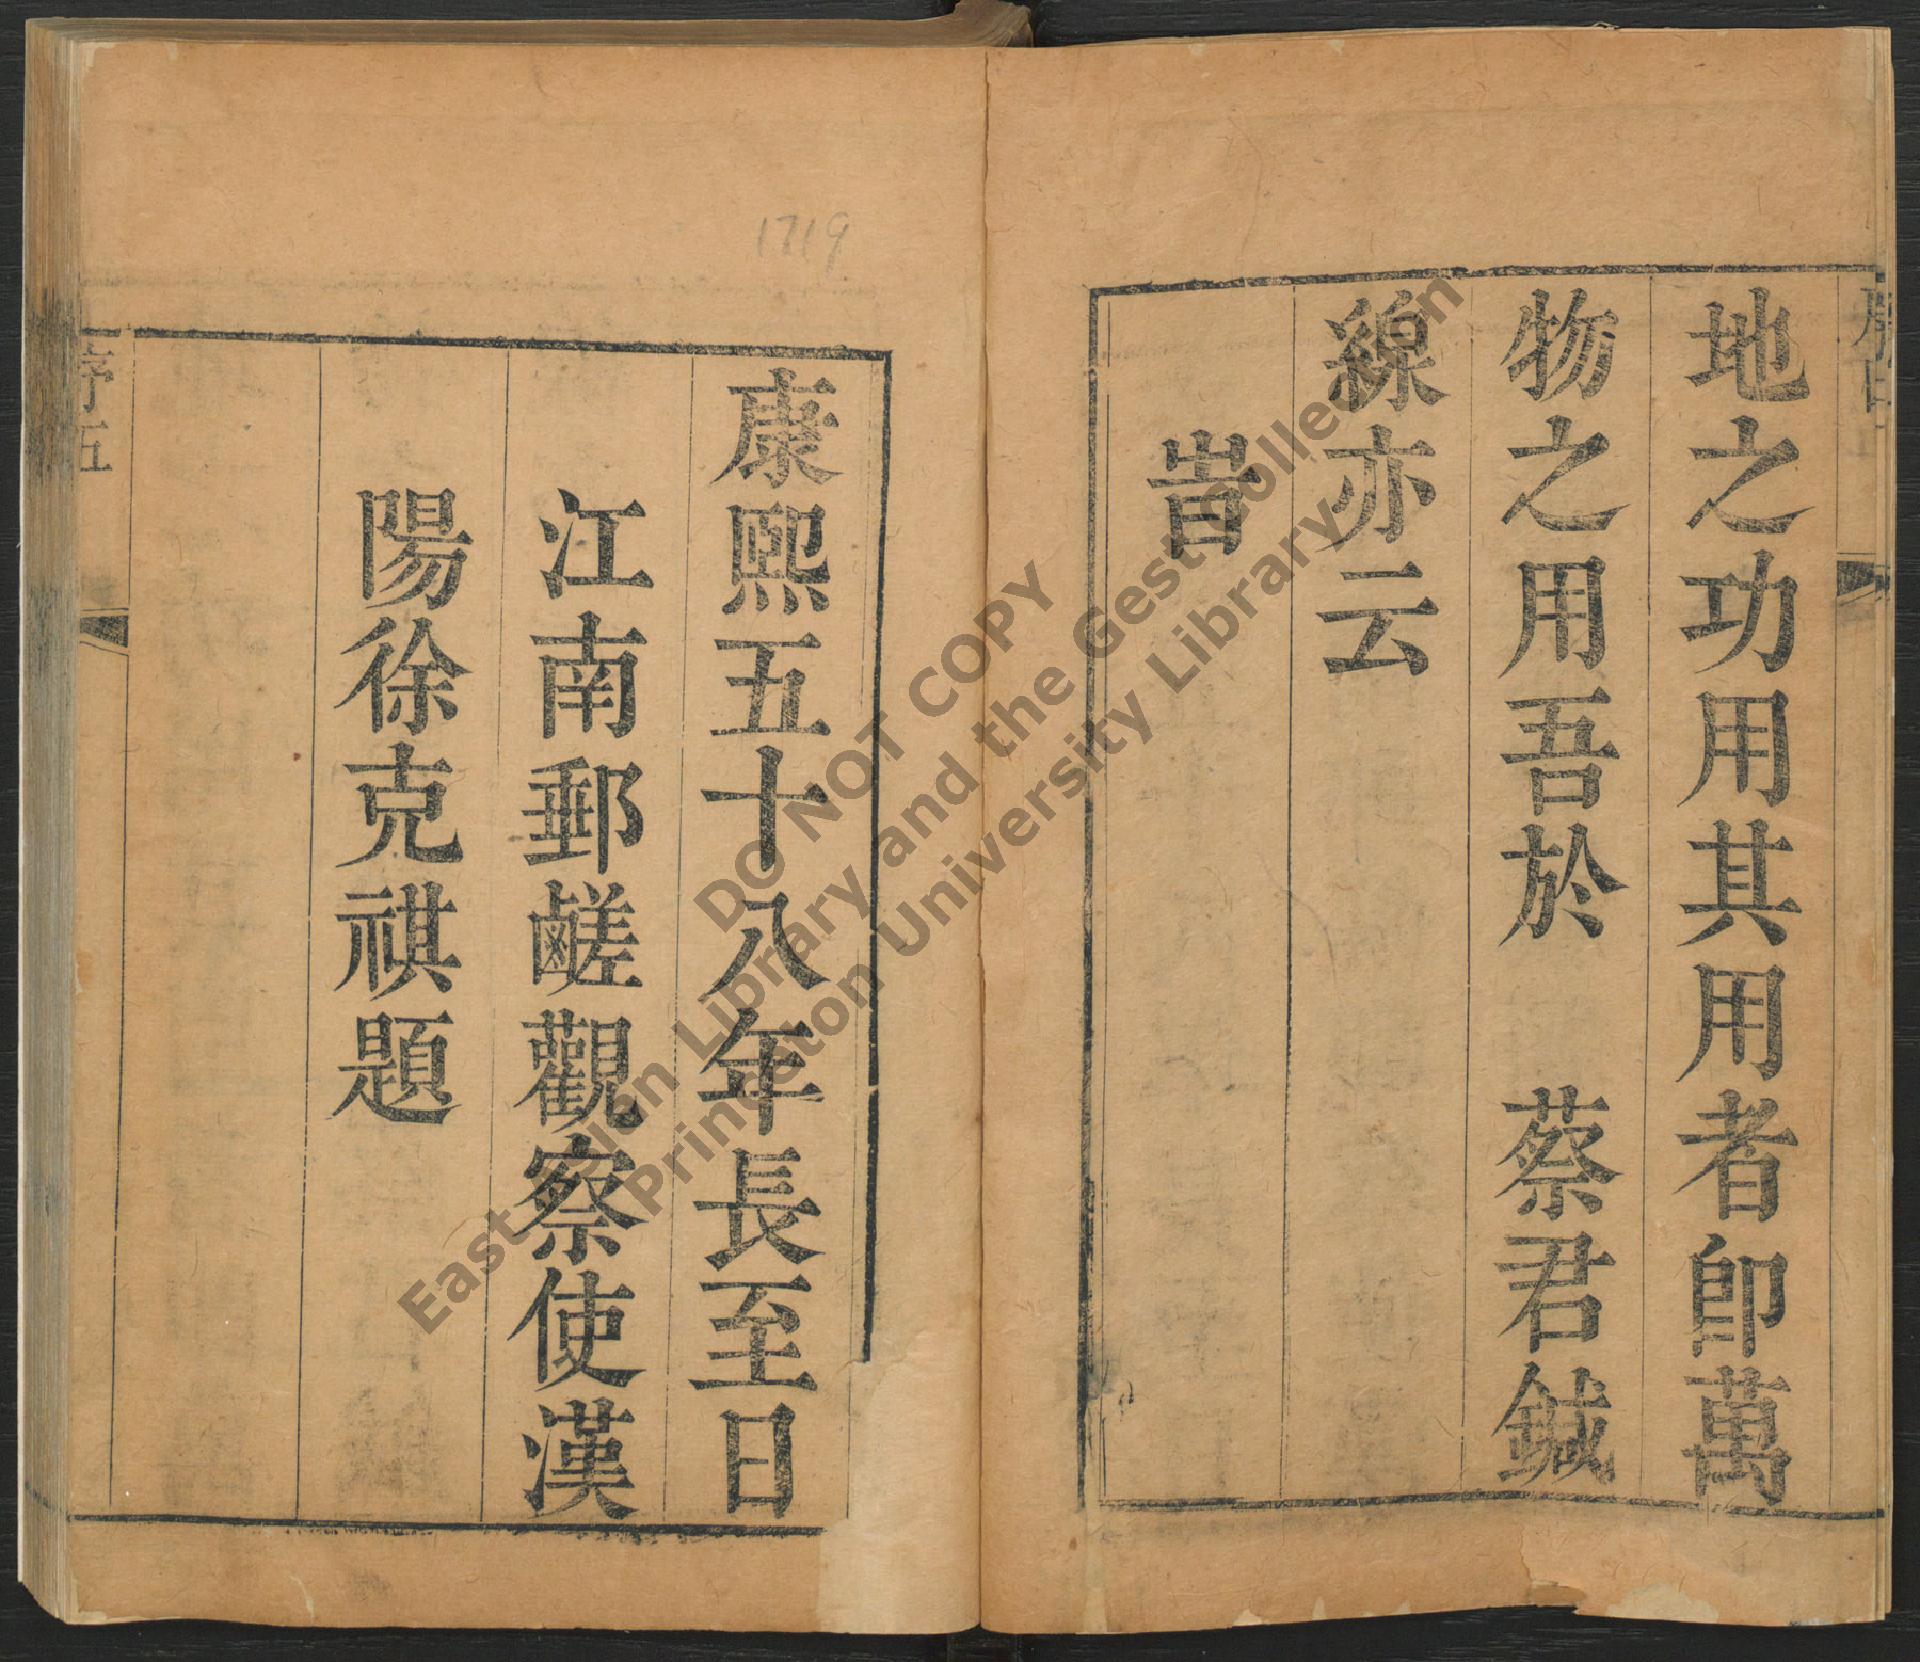 地之功用其用者卽萬
物之用吾於　蔡君鍼
線亦云
旹
康熙五十八年長至日
江南郵鹺觀察使漢
陽徐克祺題
序五
1719
DO NOT COPY
East Asian Library and the Gest Collection
Princeton University Library